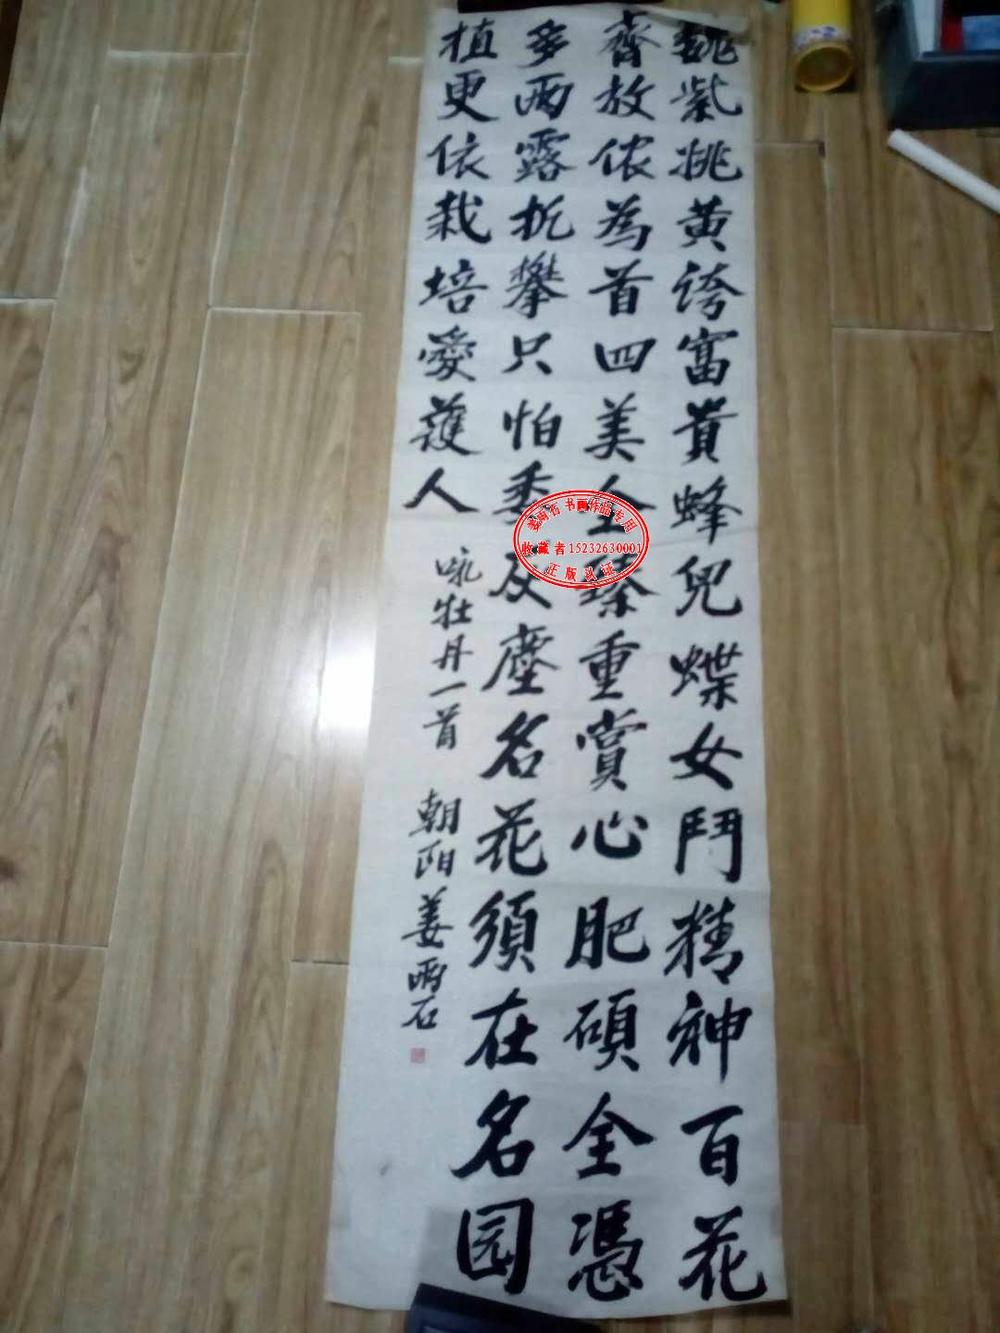 魏紫姚黄誇富貴蜂兒蝶女鬥精神百花
齊放侬為首四美全臻重賞心肥碩全憑
多雨露折攀只怕委灰塵名花須在名园
植更依栽培愛護人
咏牡丹一首 朝阳姜雨石
姜雨石书画作品专用
收藏者15232630001
正版认证